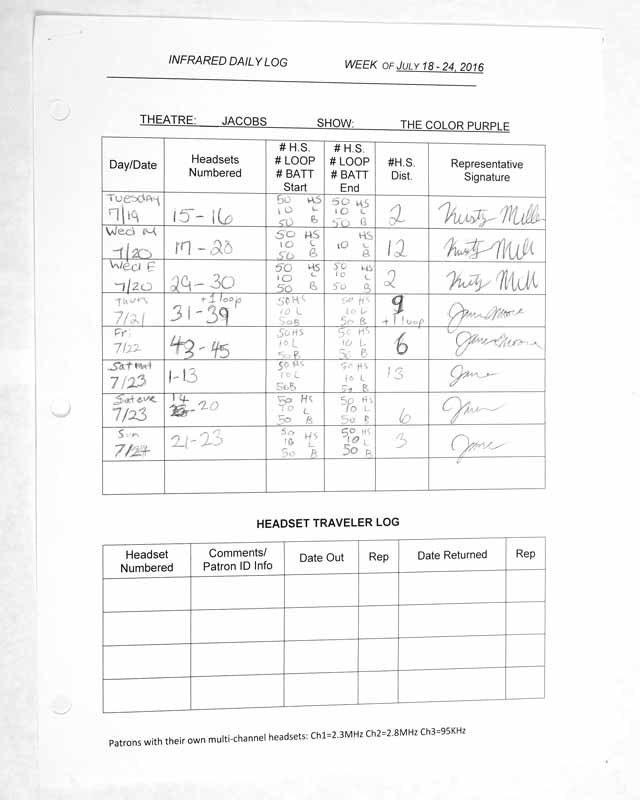 INFRARED DAILY LOG WEEK OF JULY 18 - 24, 2016
THEATRE: JACOBS SHOW: THE COLOR PURPLE
Day/Date Headsets Numbered # H.S. # LOOP # BATT Start # H.S. # LOOP # BATT End #H.S. Dist. Representative Signature
Tuesday 7/19 15-16 50 HS 10 L 50 B 50 HS 10 L 50 B 2 Kristy Miller
Wed M 7/20 17-28 50 HS 10 L 50 B HS 10 L B 12 Kristy Mill
Wed E 7/20 29-30 50 HS 10 L 50 B 50 HS 10 L 50 B 2 Kristy Mill
Thur 7/21 +1 loop 31-39 50 HS 10 L 50 B 50 HS 10 L 50 B 9 +1 loop Jane Moore
Fri 7/22 43-45 50 HS 10 L 50 B 50 HS 10 L 50 B 6 Jane Moore
Sat Mat 7/23 1-13 50 HS 10 L 50B 50 HS 10 L 50 B 13 Jane
Sat eve 7/23 14 -20 50 HS 10 L 50 B 50 HS 10 L 50 B 6 Jane
Sun 7/24 21-23 50 HS 10 L 50 B 50 HS 10 L 50 B 3 Jane
HEADSET TRAVELER LOG
Headset Numbered Comments/ Patron ID Info Date Out Rep Date Returned Rep
Patrons with their own multi-channel headsets: Ch1=2.3MHz Ch2=2.8MHz Ch3=95KHz